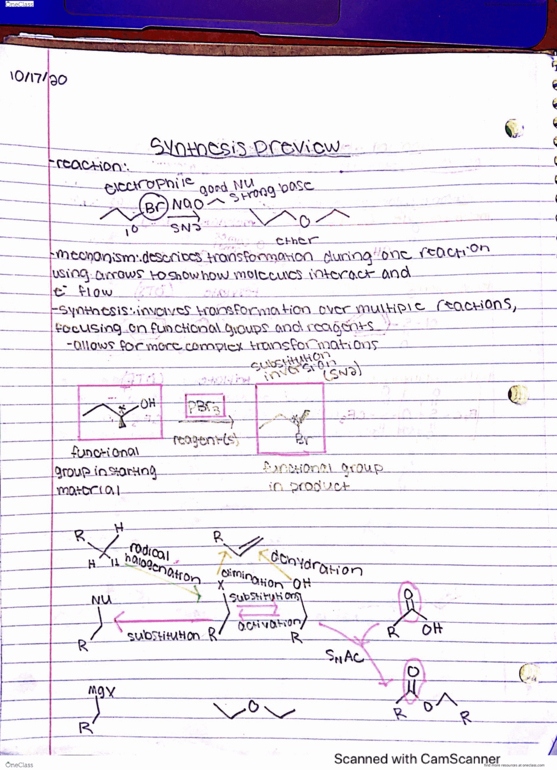 OneClass
10/17/20
Synthesis preview
-reaction:
electrophile good NU
strong base
Br NaO
1° SN2 O
ether
-mechanism: describes transformation during one reaction
using arrows to show how molecules interact and
e⁻ flow
-synthesis: involves transformation over multiple reactions,
focusing on functional groups and reagents
-allows for more complex transformations
substitution
inversion
(SN2)
OH PBr3
reagent(s) Br
functional
group in starting
material
functional group
in product
H
R R
radical
halogenation
dehydration
H H
elimination OH
X
NU substitution
activation
substitution R R
R
O
R OH
SNAC
O
R O R
MgX
R
O
Scanned with CamScanner
OneClass
find more resources at oneclass.com